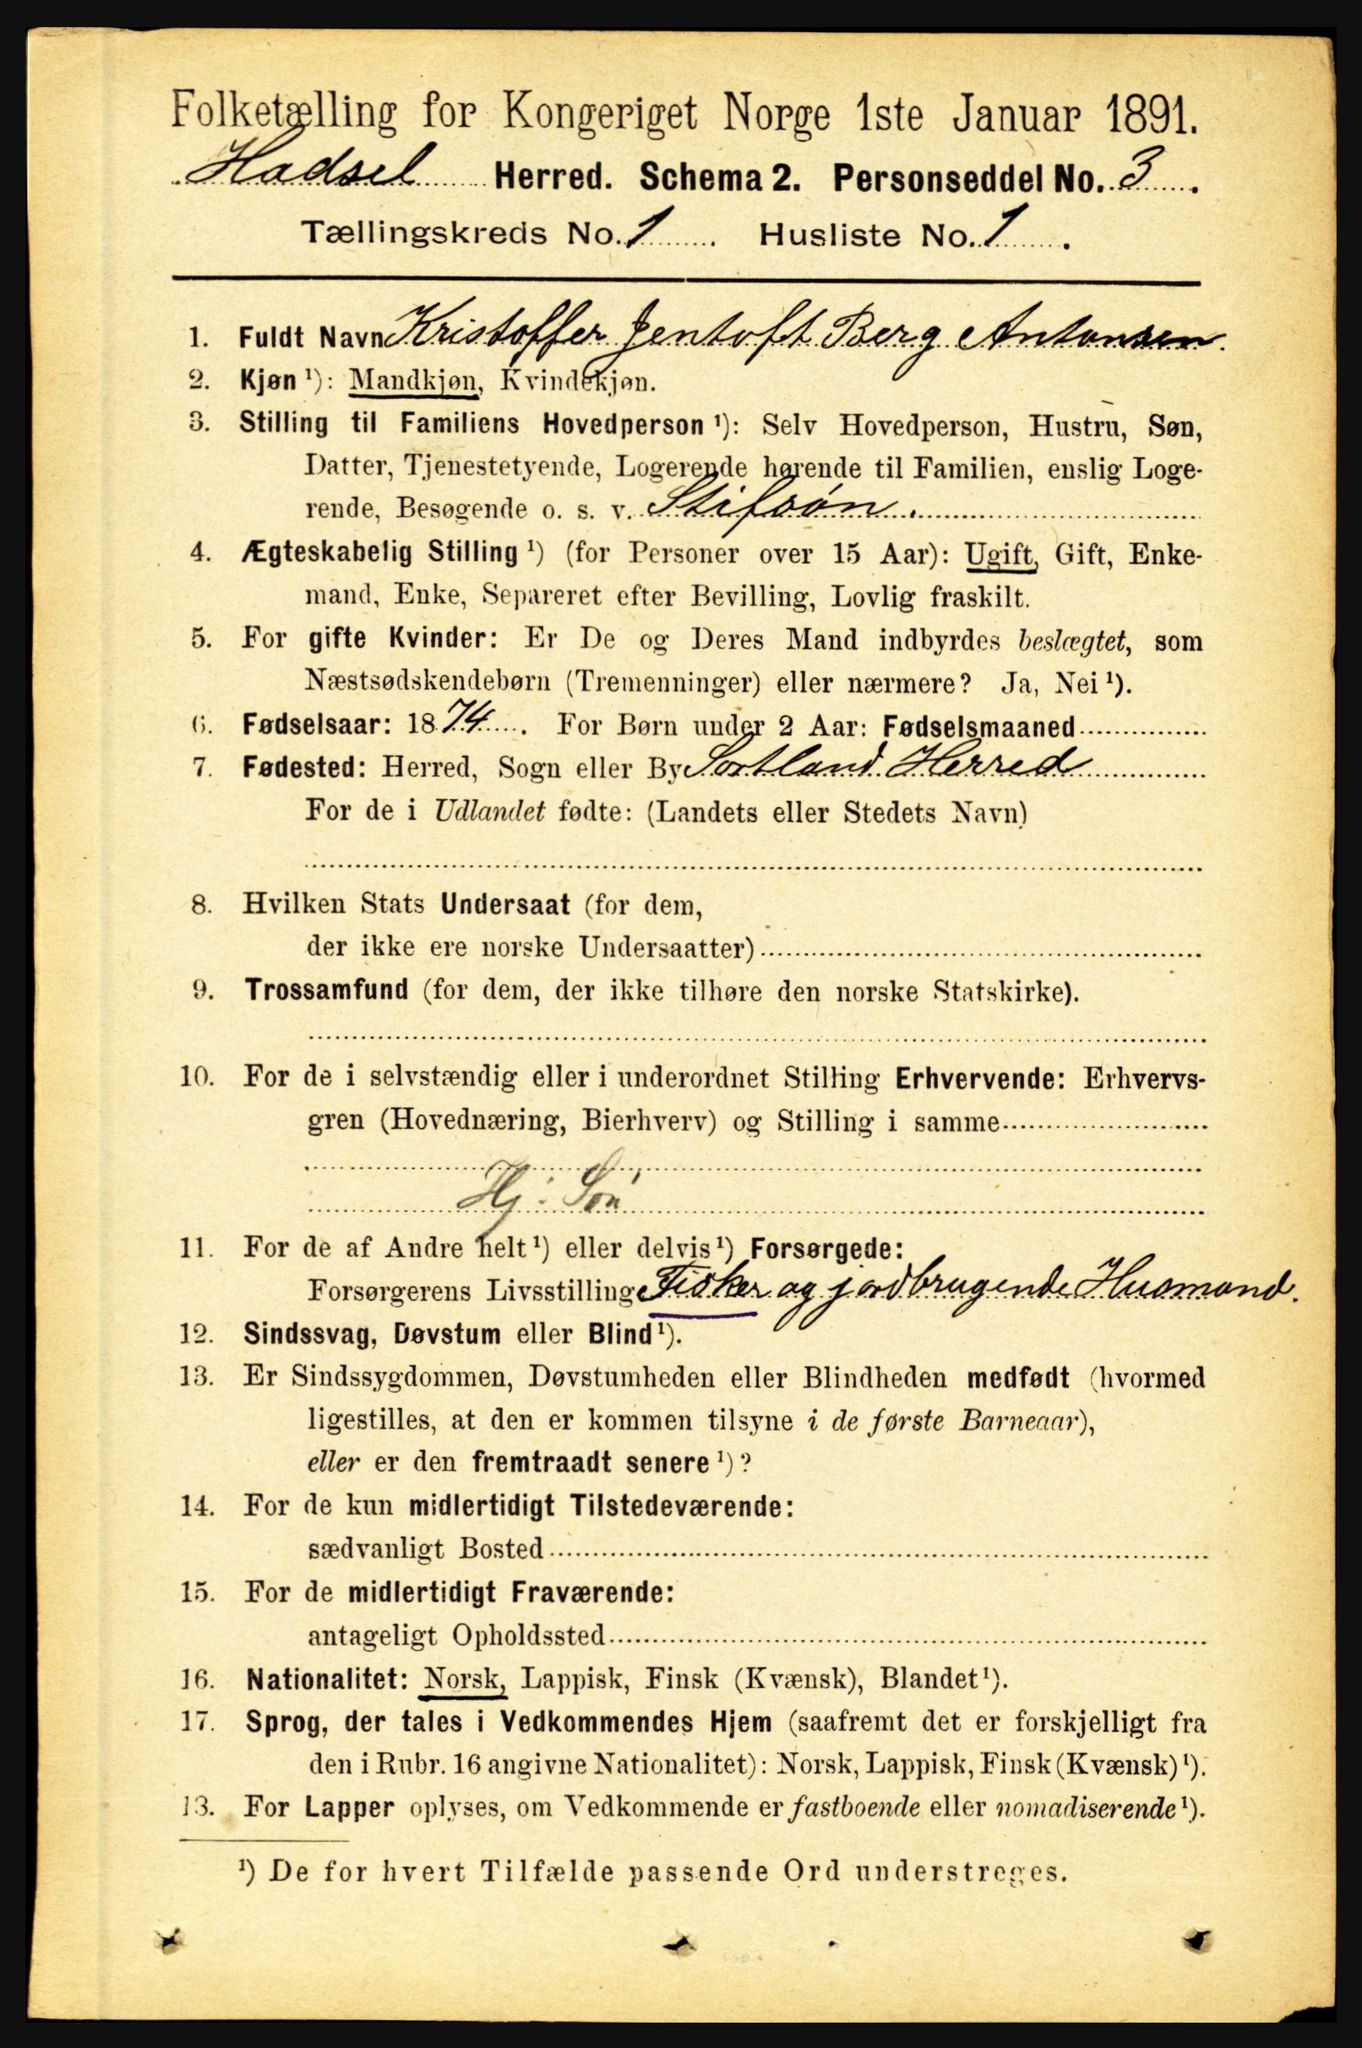 Folketælling for Kongeriget Norge 1ste Januar 1891.
Hadsel Herred. Schema 2. Personseddel No. 3.
Tællingskreds No. 1. Husliste No. 1.
1. Fuldt Navn Kristoffer Jentoft Berg Antonsen.
2. Kjøn ¹): Mandkjøn, Kvindekjøn.
3. Stilling til Familiens Hovedperson ¹): Selv Hovedperson, Hustru, Søn,
Datter, Tjenestetyende, Logerende hørende til Familien, enslig Loge-
rende, Besøgende o. s. v. Stifsøn.
4. Ægteskabelig Stilling ¹) (for Personer over 15 Aar): Ugift, Gift, Enke-
mand, Enke, Separeret efter Bevilling, Lovlig fraskilt.
5. For gifte Kvinder: Er De og Deres Mand indbyrdes beslægtet, som
Næstsødskendebørn (Tremenninger) eller nærmere? Ja, Nei ¹).
6. Fødselsaar: 1874. For Børn under 2 Aar: Fødselsmaaned
7. Fødested: Herred, Sogn eller By Sortland Herred
For de i Udlandet fødte: (Landets eller Stedets Navn)
8. Hvilken Stats Undersaat (for dem,
der ikke ere norske Undersaatter)
9. Trossamfund (for dem, der ikke tilhøre den norske Statskirke).
10. For de i selvstændig eller i underordnet Stilling Erhvervende: Erhvervs-
gren (Hovednæring, Bierhverv) og Stilling i samme
Hj. Søn
11. For de af Andre helt ¹) eller delvis ¹) Forsørgede:
Forsørgerens Livsstilling Fisker og jordbrugende Husmand.
12. Sindssvag, Døvstum eller Blind ¹).
13. Er Sindssygdommen, Døvstumheden eller Blindheden medfødt (hvormed
ligestilles, at den er kommen tilsyne i de første Barneaar),
eller er den fremtraadt senere ¹)?
14. For de kun midlertidigt Tilstedeværende:
sædvanligt Bosted
15. For de midlertidigt Fraværende:
antageligt Opholdssted
16. Nationalitet: Norsk, Lappisk, Finsk (Kvænsk), Blandet ¹).
17. Sprog, der tales i Vedkommendes Hjem (saafremt det er forskjelligt fra
den i Rubr. 16 angivne Nationalitet): Norsk, Lappisk, Finsk (Kvænsk) ¹).
13. For Lapper oplyses, om Vedkommende er fastboende eller nomadiserende ¹).
¹) De for hvert Tilfælde passende Ord understreges.